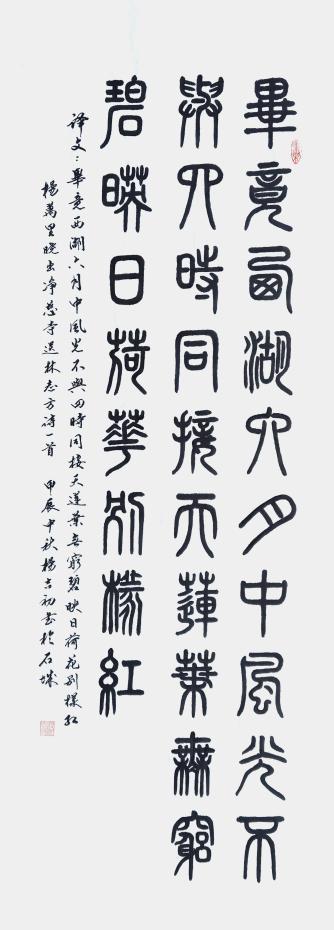 畢竟西湖六月中風光不
與四時同接天蓮葉無窮
碧映日荷華別樣紅
译文：畢竟西湖六月中風光不與四時同接天蓮葉無窮碧映日荷花别樣红
楊萬里晓出净慈寺送林子方诗一首 甲辰中秋楊吉初書於石城